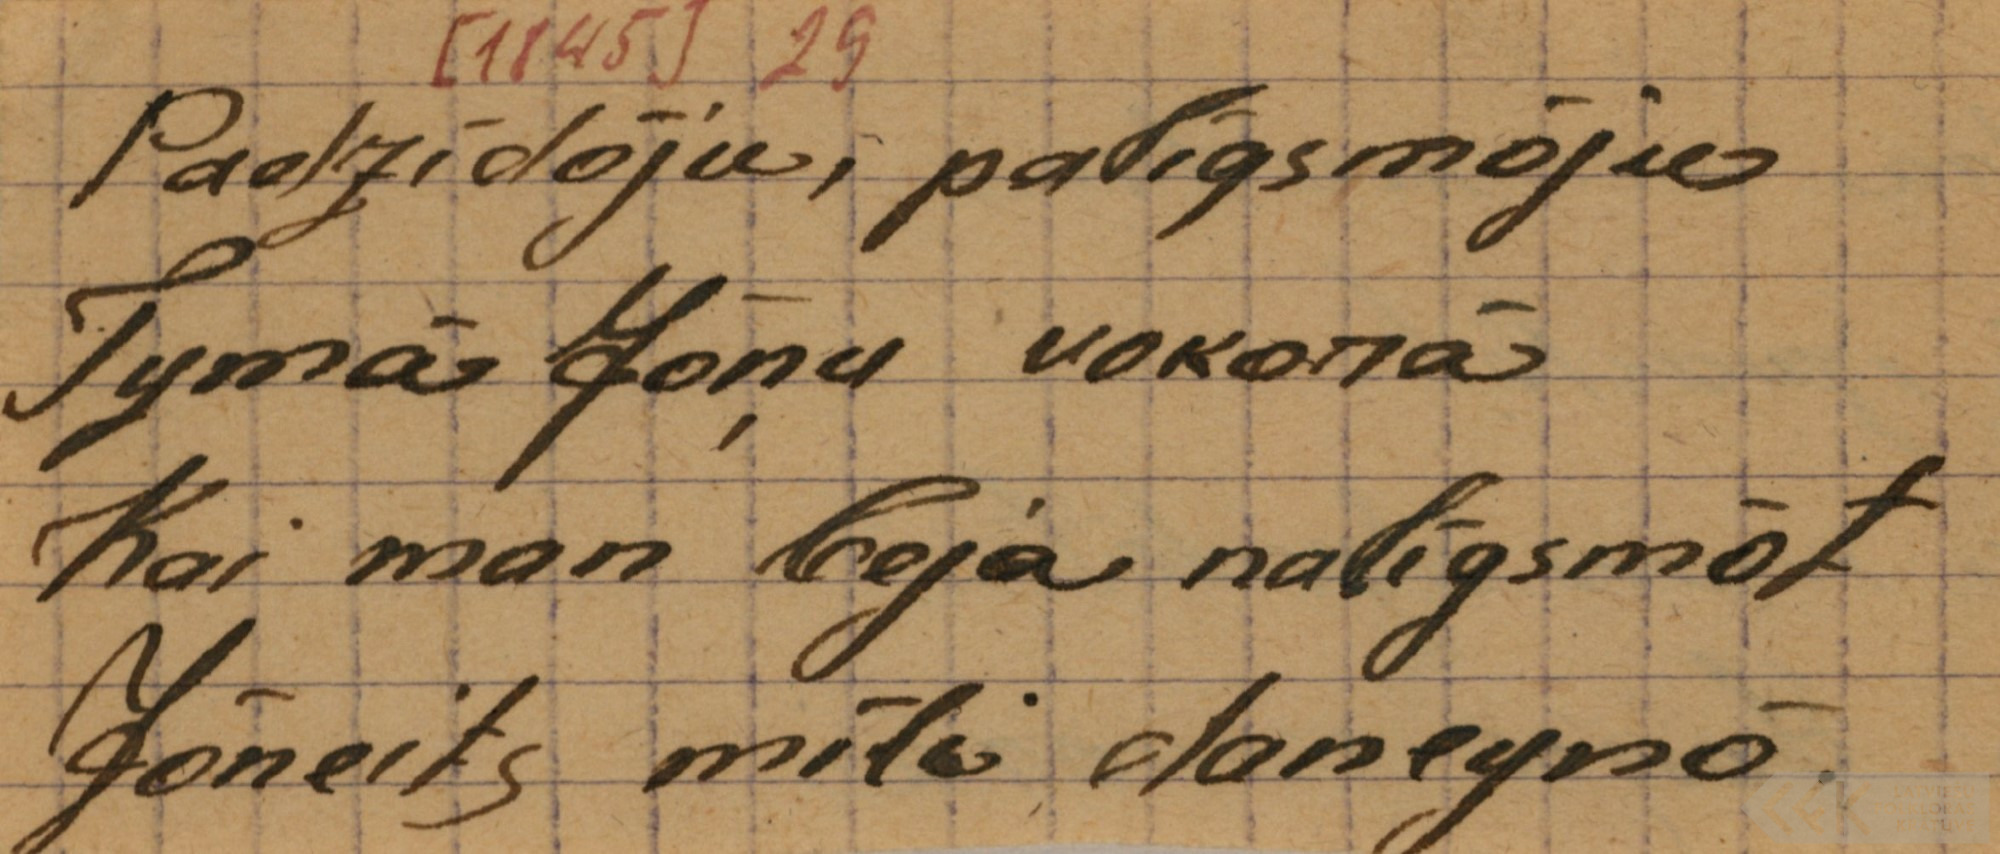 [1845] 29
Padzīdōju, palīgsmōju
Tymā Jōņu vokorā
Kai man beja nalīgsmōt
Jōneits mīli dancynō.